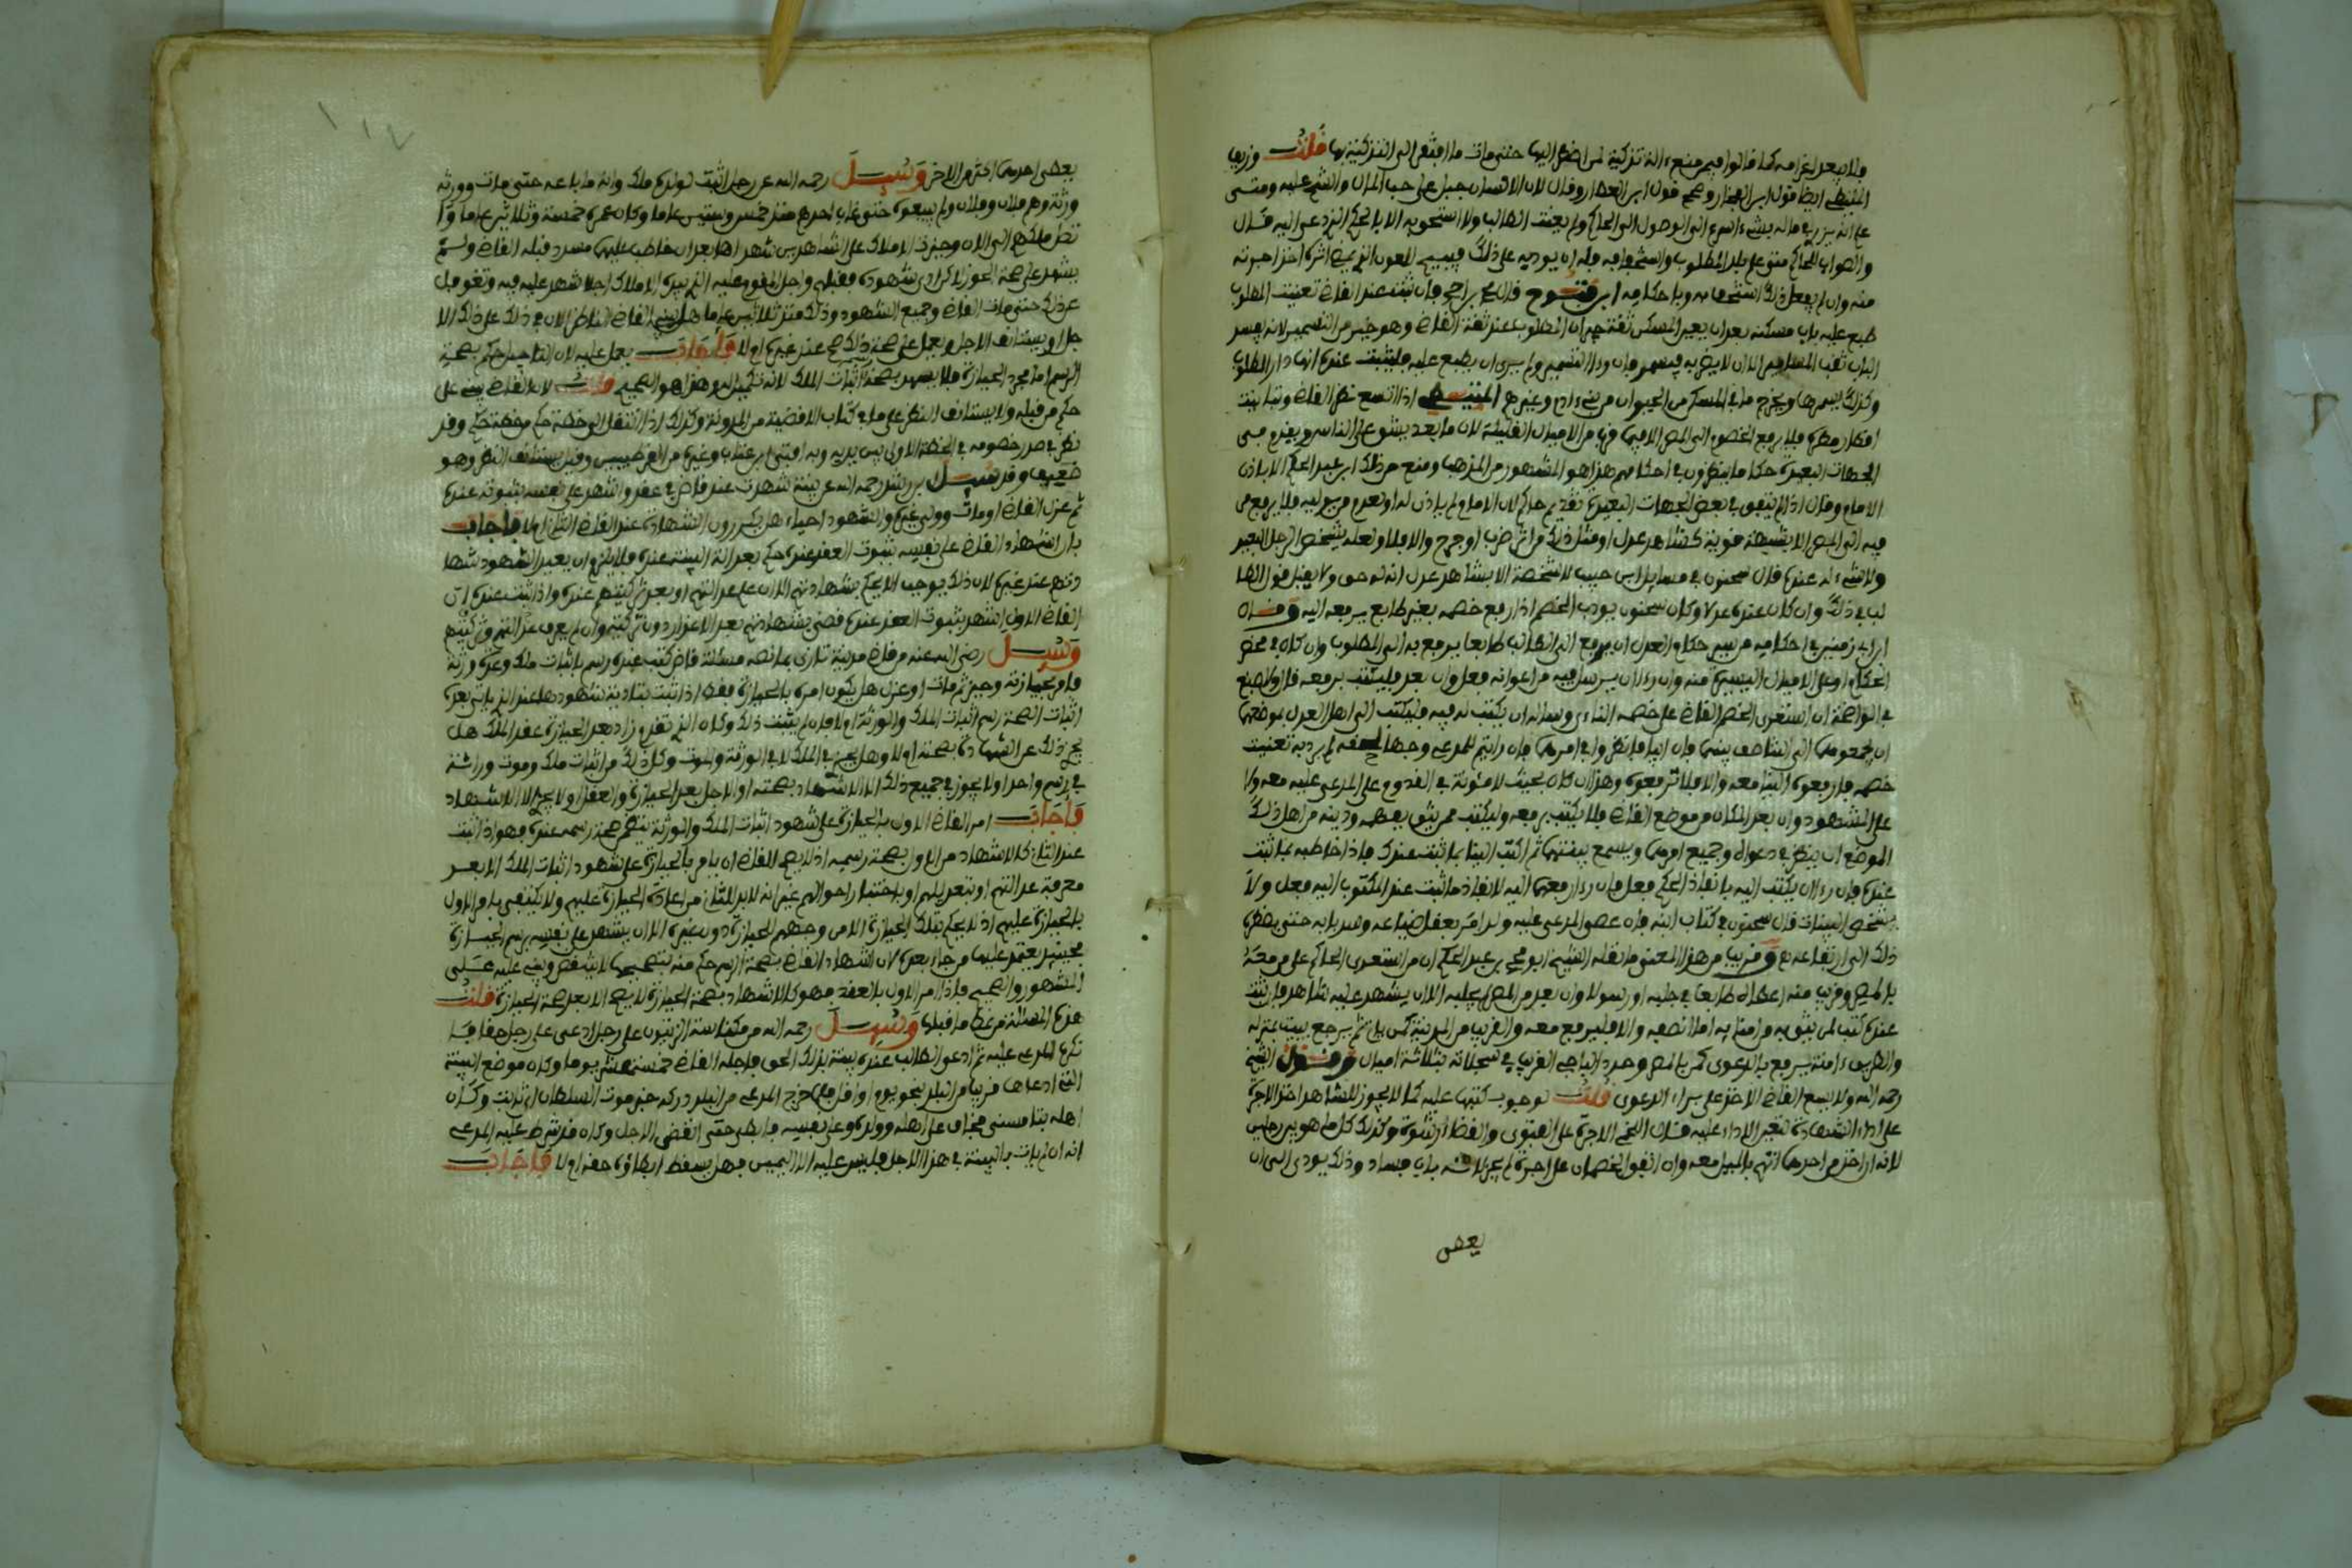 فلا يبعد اغرامه كما قالوا فيمن منع الة تزكية لمن اضطر اليها حتى مات ما افتقر الى التزكية بها قلت وزيف
المتيطي ايضا قول ابن الفخار وصحح قول ابن العطار وقال لان الانسان جبل على حب المال والشح عليه ومتى
علم انه يرزى في ماله بشيء اسرع الى الوصول الى الحاكم ولم يعنت الطالب ولا استحق به الا بالحكم الذي دعي اليه قال
والصواب للحاكم متى علم بلدد المطلوب واستخفافه قبله ان يوديه على ذلك فيبيح للعون الذي يمضي اثره اخذ اجرته
منه وان لم يفعل ذلك استخف به وباحكامه ابن فتوح قال محمد بن فإن ثبت عند القاضي تغيب المطلوب
طبع عليه باب مسكنه بعد ان يعين المسكن ثقة المطلوب عند ثقة القاضي وهو خير من التسمير لانه يفسر
الباب ثقب المسامير الا ان لا يضر به فيسمر فإن ودا التسمير ولم يرى ان يطبع عليه ما يثبت عنده انها دار المطلوب
وكذلك يسمرها ويخرج ما في المسكن من الحيوان من بني ادم وغيرهم المتيطي اذا اتسع نظر القاضي وتباينت
اقطار مصره فلا يرفع الخصوم الى المصر الا فيما قرب من الاميال القليلة لان ما بعد يشق على الناس ويقدم في
الجهات البعيدة حكاما ينظرون في احكامهم هذا هو المشهور من المذهب ومنع من ذلك ابن عبد الحكم الا باذن
الامام وقال اذا لم يتفق في بعض الجهات البعيدة تقديم حاكم لان الامام لم ياذن له او لعدم من يوليه فلا يرفع من
فيه الى المصر الا بشبهة قوية كشاهد عدل او مثل ذلك من اثر ضرب او جرح والا فلا ولعله يشخص الرجل البعيد
ولا شيء له عنده قال سحنون في مسايل ابن حبيب لا شخصة الا بشاهد عدل انه له حق ولا يقبل قول الطا
لب في ذلك وان كان عنده عدلا وكان سحنون يودب الخصم اذا رفع خصمه بغير طابع يرفعه اليه وقال
ابن ابي زمنين في احكامه من سير حكام العدل ان يدفع الى الطالب طابعا يرفع به الى المطلوب وان كان في مصر
الحكام او على الاميال اليسيرة منه وان رءا ان يرسل فيه من اعوانه فعل وان بعد فليكتب برفعه قال اصبغ
في الواضحة ان استعدى الخصم القاضي على خصمه الناءي وساله ان يكتب له فيه فليكتب الى اهل العدل بموضعهما
ان يجمعوهما الى التناصف بينهما فإن ابيا فانظروا في امرهما فإن رايتم للمدعي وجها لم يرد به تعنيت
خصمه فارفعوه الينا معه والا فلا ترفعوه وهذا ان كان بحيث لا مئونة في القدوم على المدعى عليه معه ولا
على الشهود وان بعد المكان من موضع القاضي فلا يكتب برفعه وليكتب لمن يثق بفهمه ودينه من اهل ذلك
الموضع ان ينظر في دعواه وجميع امرهما ويسمع بينتهما ثم اكتب الينا بما ثبت عندك فإذا خاطبه بما ثبت
عنده فإن رءا ان يكتب اليه بانفاذ الحكم فعل وإن رءا رفعهما اليه لانفاذ ما ثبت عند المكتوب اليه فعل ولا
يشخص البينات قال سحنون في كتاب ابنه وان عصى المدعى عليه ولد امر بعقل ضياعه وسد بابه حتى يضطره
ذلك الى ارتفاعه مع وقريب من هذا المعنى ما نقله الشيخ ابو محمد بن عبد الحكم ان من استعدى الحاكم على من معه
بالمصر وقريب منه اعطاه طابعا في جلبه او رسولا وان بعد من المصر لم يجلبه الا ان يشهد عليه شاهد فإن ثبت
عنده كتب لمن يثق به من امنايه اما انصفه والا فليرفع معه والقريب من المدينة كمن ياتي ثم يرجع يبيت بمنزله
والطريق ءامنة يرفع بالدعوى كمن بالمصر وحدد الباجي القريب في سجلاته بثلاثة اميال وقول الشيخ
رحمه الله ولا يسع القاضي الاخذ على براءة الدعوى قلت لوجوب كتبها عليه كما لا يجوز للشاهد اخذ الاجرة
على اداء الشهادة لتعين الاداء عليه قال اللخمي الاجرة على الفتوى والقضا رشوة وكذلك كل ما هو بين رجلين
لانه ان اخذ من احدهما اتهم بالميل معه وان اتفق الخصمان على اجرة لم يجز لانه باب فساد وذلك يودي الى ان
بعض
بعض احدهما اكثر من الاخر وسيل رحمه الله عن رجل اثبت لولده ملك وانه ما باعه حتى مات وورثه
ورثة وهم فلان وفلان ولم يبيعوه حتى غاب احدهم منذ خمس وستين عاما وكان عمره خمسة وثلاثين عاما وا
تصل ملكهم الى الان وحيزت الاملاك على الشاهدين شهد اهل بعد ان خاطب عليهما مسدد قبله القاضي ولم
يشهد على صحة الحوز الا كرادى شهوده فقبلهم واجل المقوم عليه الذي بيده الاملاك اجلا شهد عليه فيه وتغوفل
عن ذلك حتى مات القاضي وجميع الشهود وذلك منذ ثلاثين عاما هل يبني القاضي الناظر الان في ذلك على ذلك الا
جل او يستانف الاجل ويعمل على صحة ذلك صح عند غيره ام لا فأجاب يعمل عليه لان التاجيل حكم بصحة
الرسم اما مجرد الحيازة فلا يشهد بصحة اثبات الملك لانه تكميل له وهذا هو الصحيح قلت لان القاضي يبني على
حكم من قبله ولا يستانف النظر على ما في كتاب الاقضية من المدونة وكذلك اذا انتقل من خطة حكم من خطة حكم وقد
نظر في صدر خصومه في الخطة الاولى بين يديه وبه افتى ابن عتاب وغيره من القرطبيين وقيل يستانف النظر وهو
ضعيف وقد سيل ابن رشد رحمه الله عن بينة شهدت عند قاض في عقد واشهد على نفسه بثبوته عنده
ثم عزل القاضي او مات وولي غيره والشهود احياء هل يكررون الشهادة عند القاضي الثاني ام لا فأجاب
بان اشهاد القاضي على نفسه بثبوت العقد عنده حكم بعدالة البينة عنده فلا يلزم ان يعيد الشهود شها
دتهم عند غيره لان ذلك يوجب الا يحكم بشهادتهم الا ان علم عدالتهم او بعد تزكيتهم عنده واذا ثبت عنده ان
القاضي الاول اشهد بثبوت العقد عنده قضى بشهادتهم بعد الاعذار دون تزكية وان لم يعرف عدالتهم
وسيل رضي الله عنه من قاضي مدينة تازى بما نصه مسئلة قاض كتب عنده رسم باثبات ملك وعدة ورثة
وامر بحيازته وحيز ثم مات او عزل هل يكون امره بالحيازة فقط اذا ثبت بتادية شهودها عند الذي ياتي بعده
اثبات الصحة رسم اثبات الملك والورثة ام لا فإن لم يثبت ذلك وكان الذي تقدم زاد بعد الحيازة عقد الملك هل
يجزي ذلك عن الشهادة بصحته ام لا وهل يجزي في الملك لا في الورثة والموت وكل ذلك من اثبات ملك وموت وراثة
في رسم واحد او لا يجوز في جميع ذلك الا الاشهاد بصحته او الاجل بعد الحيازة والعقل او لا يجزي الا الاشهاد
فأجاب امر القاضي الاول بالحيازة على شهود اثبات الملك والورثة يتضمن صحة رسمه عنده فهو اذا ثبت
عند الثاني كالاشهاد من الاول بصحة رسميه اذ لا يصح للقاضي ان يامر بالحيازة على شهود اثبات الملك الا بعد
معرفة عدالتهم او تعديلهم او باختبار احوالهم غير انه لا بد للثاني من اعادة الحيازة عليهم ولا يكتفي بامر الاول
بالحيازة عليهم اذ لا يحكم بتلك الحيازة الا من وجههم للحيازة دون غيره الا ان يشهد على نفسه برسم الحيازة
فحينئذ يعتمد عليها من جاء بعده لان اشهاد القاضي بصحة الرسم حكم منه بتصحيحها لا ينقض ويبنى عليه على
المشهور والصحيح فاذا امر الاول بالعقد فهو كالاشهاد بصحة الحيازة لا يصح الا بعد صحة الحيازة قلت
هذه المسئلة من نمط ما قبلها وسيل رحمه الله من مكناسة الزيتون على رجل ادعى على رجل حقا فا
نكره المدعى عليه ثم ادعى الطالب عنده بينة بذلك الحق فاجله القاضي خمسة عشر يوما وكان موضع البينة
التي ادعاها قريبا من البلد بنحو يوم او اقل فلما خرج المدعي من البلد دركه خبر موت السلطان ابن ثابت وكان
اهله بتامسنى فخاف على اهله وولده وعلى نفسه فابطا حتى انقضى الاجل وكان قد شرط عليه المدعى
انه ان لم يات بالبينة في هذا الاجل فليس عليه الا اليمين فهل يسقط ابطاؤه حقه ام لا فأجاب